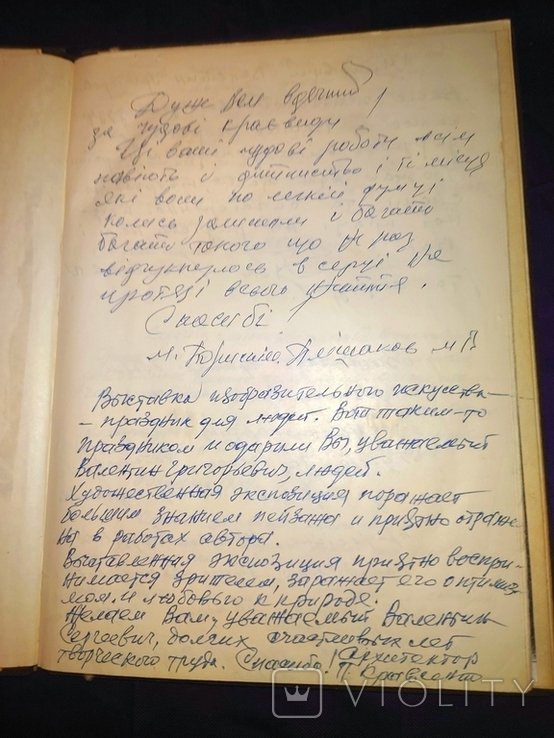 Дуже Вам вдячний
за чудові краєвиди!
Ці ваші чудові роботи всім
навіють й дитинство і ті місця
які вони по легкій думці
колись залишили і багато
багато такого що не раз
відгукнулось в серці на
протязі всього життя.
Спасибі!
м. Бориспіль М В
Выставка изобразительного искусства
- праздник для людей. Вот таким-то
праздником и одарили Вы, уважаемый
Валентин Григорьевич, людей.
Художественная экспозиция поражает
большим знанием пейзажа и приятно отраже-
на в работах автора.
Выставленная экспозиция приятно воспри-
нимается зрителем, заражает его оптимиз-
мом и любовью к природе.
Желаем Вам, уважаемый Валентин
Сергеевич, долгих счастливых лет
творческого труда. Спасибо! Архитектор
П. Кравченко
VIOLITY